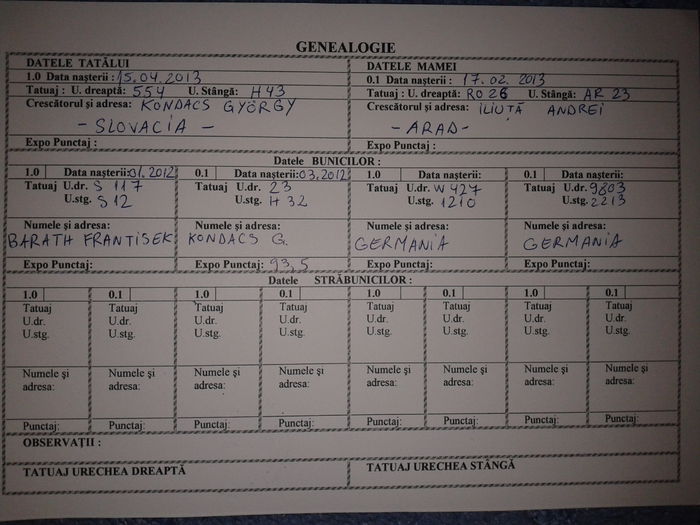 GENEALOGIE
DATELE TATĂLUI
1.0 Data nașterii : 15.04.2013
Tatuaj : U. dreaptă: 554 U. Stângă: H43
Crescătorul și adresa: KONDACS GYÖRGY
- SLOVACIA -
Expo Punctaj :
DATELE MAMEI
0.1 Data nașterii : 17.02.2013
Tatuaj : U. dreaptă: RO 26 U. Stângă: AR 23
Crescătorul și adresa: ILIUȚĂ ANDREI
- ARAD -
Expo Punctaj :
Datele BUNICILOR :
1.0 Data nașterii: 01.2012
Tatuaj U.dr. S 117
U.stg. S12
Numele și adresa:
BARATH FRANTISEK
Expo Punctaj:
0.1 Data nașterii: 03.2012
Tatuaj U.dr. 23
U.stg. H 32
Numele și adresa:
KONDACS G.
Expo Punctaj: 93,5
1.0 Data nașterii:
Tatuaj U.dr. W 427
U.stg. 1210
Numele și adresa:
GERMANIA
Expo Punctaj:
0.1 Data nașterii:
Tatuaj U.dr. 9803
U.stg. 2213
Numele și adresa:
GERMANIA
Expo Punctaj:
Datele STRĂBUNICILOR :
1.0 0.1 1.0 0.1 1.0 0.1 1.0 0.1
Tatuaj Tatuaj Tatuaj Tatuaj Tatuaj Tatuaj Tatuaj Tatuaj
U.dr. U.dr. U.dr. U.dr. U.dr. U.dr. U.dr. U.dr.
U.stg. U.stg. U.stg. U.stg. U.stg. U.stg. U.stg. U.stg.
Numele și Numele și Numele și Numele și Numele și Numele și Numele și Numele și
adresa: adresa: adresa: adresa: adresa: adresa: adresa: adresa:
Punctaj: Punctaj: Punctaj: Punctaj: Punctaj: Punctaj: Punctaj: Punctaj:
OBSERVAȚII :
TATUAJ URECHEA DREAPTĂ
TATUAJ URECHEA STÂNGĂ